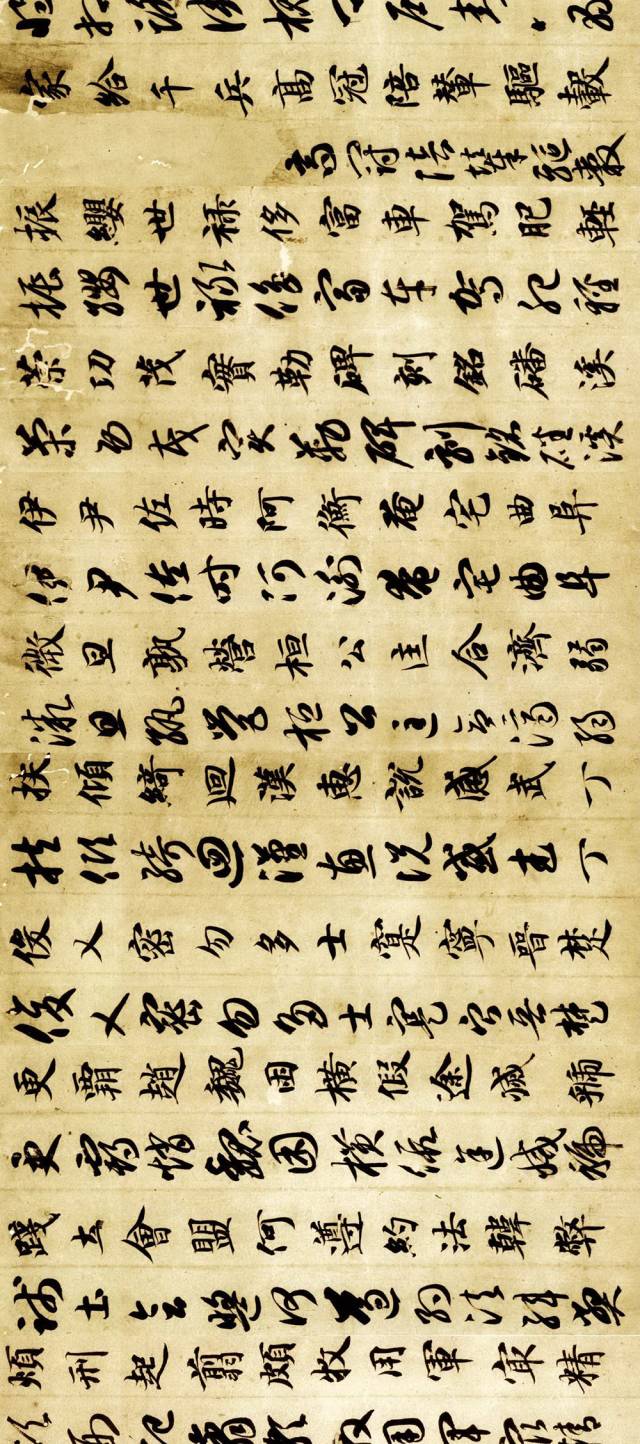 家給千兵高冠陪輦驅轂
高冠陪輦驅轂
振纓世祿侈富車駕肥輕
振纓世祿侈富車駕肥輕
策功茂實勒碑刻銘磻溪
策功茂實勒碑刻銘磻溪
伊尹佐時阿衡奄宅曲阜
伊尹佐時阿衡奄宅曲阜
微旦孰營桓公匡合濟弱
微旦孰營桓公匡合濟弱
扶傾綺迴漢惠說感武丁
扶傾綺迴漢惠說感武丁
俊乂密勿多士寔寧晉楚
俊乂密勿多士寔寧晉楚
更霸趙魏困橫假途滅虢
更霸趙魏困橫假途滅虢
踐土會盟何遵約法韓弊
踐土會盟何遵約法韓弊
煩刑起翦頗牧用軍㝡精